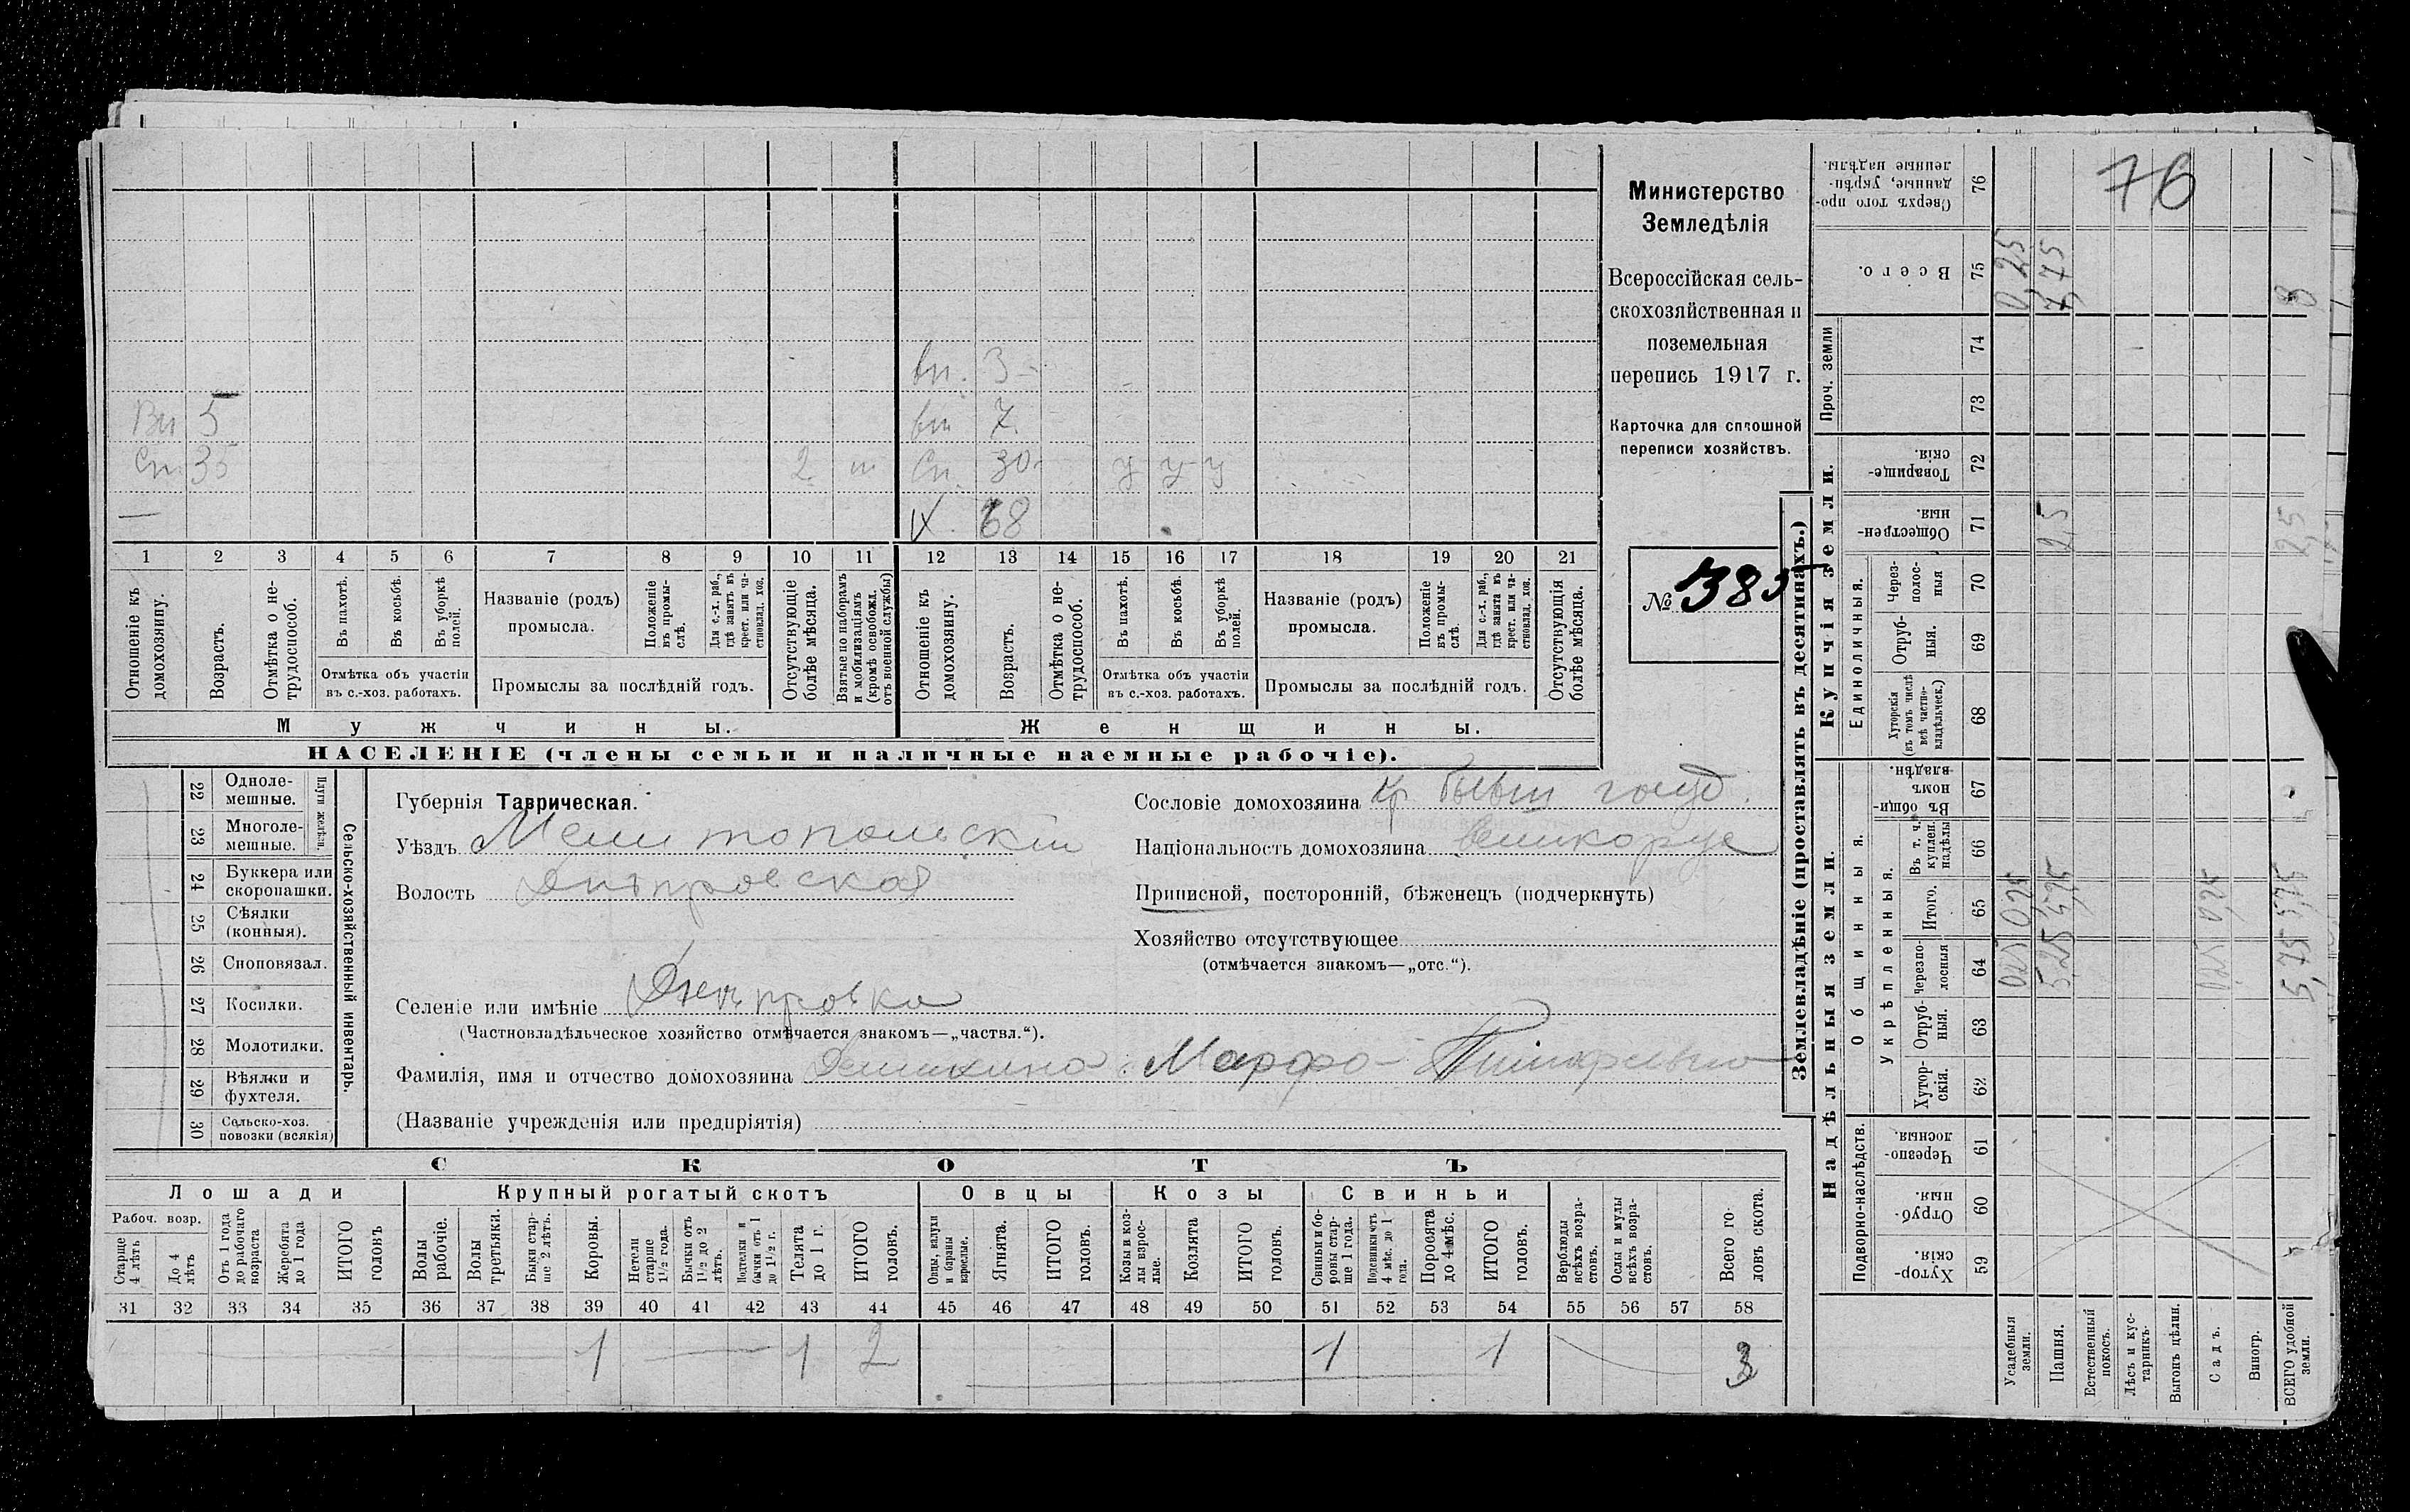 76
Вн 5
Сн 35 2
вн. 3
вн 7
Сн. 30 у у у
68
1 2 3 4 5 6 7 8 9 10 11 12 13 14 15 16 17 18 19 20 21
Отношеніе къ домохозяину.
Возрастъ.
Отмѣтка о не-трудоспособ.
Въ пахотѣ.
Въ косьбѣ.
Въ уборкѣ полей.
Отмѣтка объ участіи
въ с.-хоз. работахъ.
Названіе (родъ)
промысла.
Положеніе въ промы-слѣ.
Для с.-х. раб., гдѣ занятъ въ крест. или ча-стновлад. хоз.
Промыслы за послѣдній годъ.
Отсутствующіе болѣе мѣсяца.
Взятые по наборамъ и мобилизаціямъ (кромѣ освобожд. отъ военной службы)
Отношеніе къ домохозяину.
Возрастъ.
Отмѣтка о не-трудоспособ.
Въ пахотѣ.
Въ косьбѣ.
Въ уборкѣ полей.
Отмѣтка объ участіи
въ с.-хоз. работахъ.
Названіе (родъ)
промысла.
Положеніе въ промы-слѣ.
Для с.-х. раб., гдѣ занята въ крест. или ча-стновлад. хоз.
Промыслы за послѣдній годъ.
Отсутствующія болѣе мѣсяца.
Мужчины.
Женщины.
НАСЕЛЕНІЕ (члены семьи и наличные наемные рабочіе).
Министерство
Земледѣлія
Всероссійская сель-
скохозяйственная и
поземельная
перепись 1917 г.
Карточка для сплошной
переписи хозяйствъ.
№ 385
22 Одноле-
мешные.
23 Многоле-
мешные.
Плуги желѣзн.
24 Буккера или
скоропашки.
25 Сѣялки
(конныя).
26 Сноповязал.
27 Косилки.
28 Молотилки.
29 Вѣялки и
фухтеля.
30 Сельско-хоз.
повозки (всякія)
Сельско-хозяйственный инвентарь.
Губернія Таврическая.
Уѣздъ Мелитопольскій
Волость Днѣпровская
Селеніе или имѣніе Днѣпровка
(Частновладѣльческое хозяйство отмѣчается знакомъ—„частвл.“).
Фамилія, имя и отчество домохозяина Марфа
(Названіе учрежденія или предпріятія)
Сословіе домохозяина кр бывш госуд.
Національность домохозяина великорус
Приписной, посторонній, бѣженецъ (подчеркнуть)
Хозяйство отсутствующее
(отмѣчается знакомъ—„отс.“).
СКОТЪ
Лошади
Крупный рогатый скотъ
Овцы
Козы
Свиньи
Рабоч. возр.
Старше 4 лѣтъ
До 4 лѣтъ
Отъ 1 года до рабочаго возраста
Жеребята до 1 года
ИТОГО головъ
Волы рабочіе.
Волы третьяки.
Быки стар-ше 2 лѣтъ.
Коровы.
Нетели старше 1½ года.
Бычки отъ 1½ до 2 лѣтъ.
Подтелки и бычки отъ 1 до 1½ г.
Телята до 1 г.
ИТОГО головъ.
Овцы, валухи и бараны взрослые.
Ягнята.
ИТОГО головъ.
Козы и коз-лы взрос-лые.
Козлята
ИТОГО головъ.
Свиньи и бо-ровы стар-ше 1 года.
Подсвинки отъ 4 мѣс. до 1 года.
Поросята до 4 мѣс.
ИТОГО головъ.
Верблюды всѣхъ возра-стовъ.
Ослы и мулы всѣхъ возра-стовъ.
Всего го-ловъ скота.
31 32 33 34 35 36 37 38 39 40 41 42 43 44 45 46 47 48 49 50 51 52 53 54 55 56 57 58
1 1 2 1 1 3
Землевладѣніе (проставлять въ десятинахъ.)
Купчія земли.
Надѣльныя земли.
Проч. земли
Единоличныя.
Общинныя.
Укрѣпленныя.
Подворно-наслѣдств.
Сверхъ того про-данные, укрѣп-ленные надѣлы. 76
Всего. 75 0,25 7,75 8
74
73
Товарище-скія. 72
Обществен-ныя. 71 2,5 2,5
Через-полос-ныя 70
Отруб-ныя. 69
Хуторскія (въ томъ числѣ всѣ частно-владѣльческ.) 68
Въ общи-номъ владѣн. 67
Въ т. ч. куплен. надѣлы 66
Итого. 65 0,25 0,25
Черезпо-лосныя 64 0,25 5,25 0,25 5,75
Отруб-ныя. 63
Хутор-скія. 62
Черезпо-лосныя. 61
Отруб-ныя. 60
Хутор-скія. 59
Усадебныя земли.
Пашня.
Естественный покосъ.
Лѣсъ и кус-тарникъ.
Выгонъ цѣлин.
Садъ.
Виногр.
ВСЕГО удобной земли.